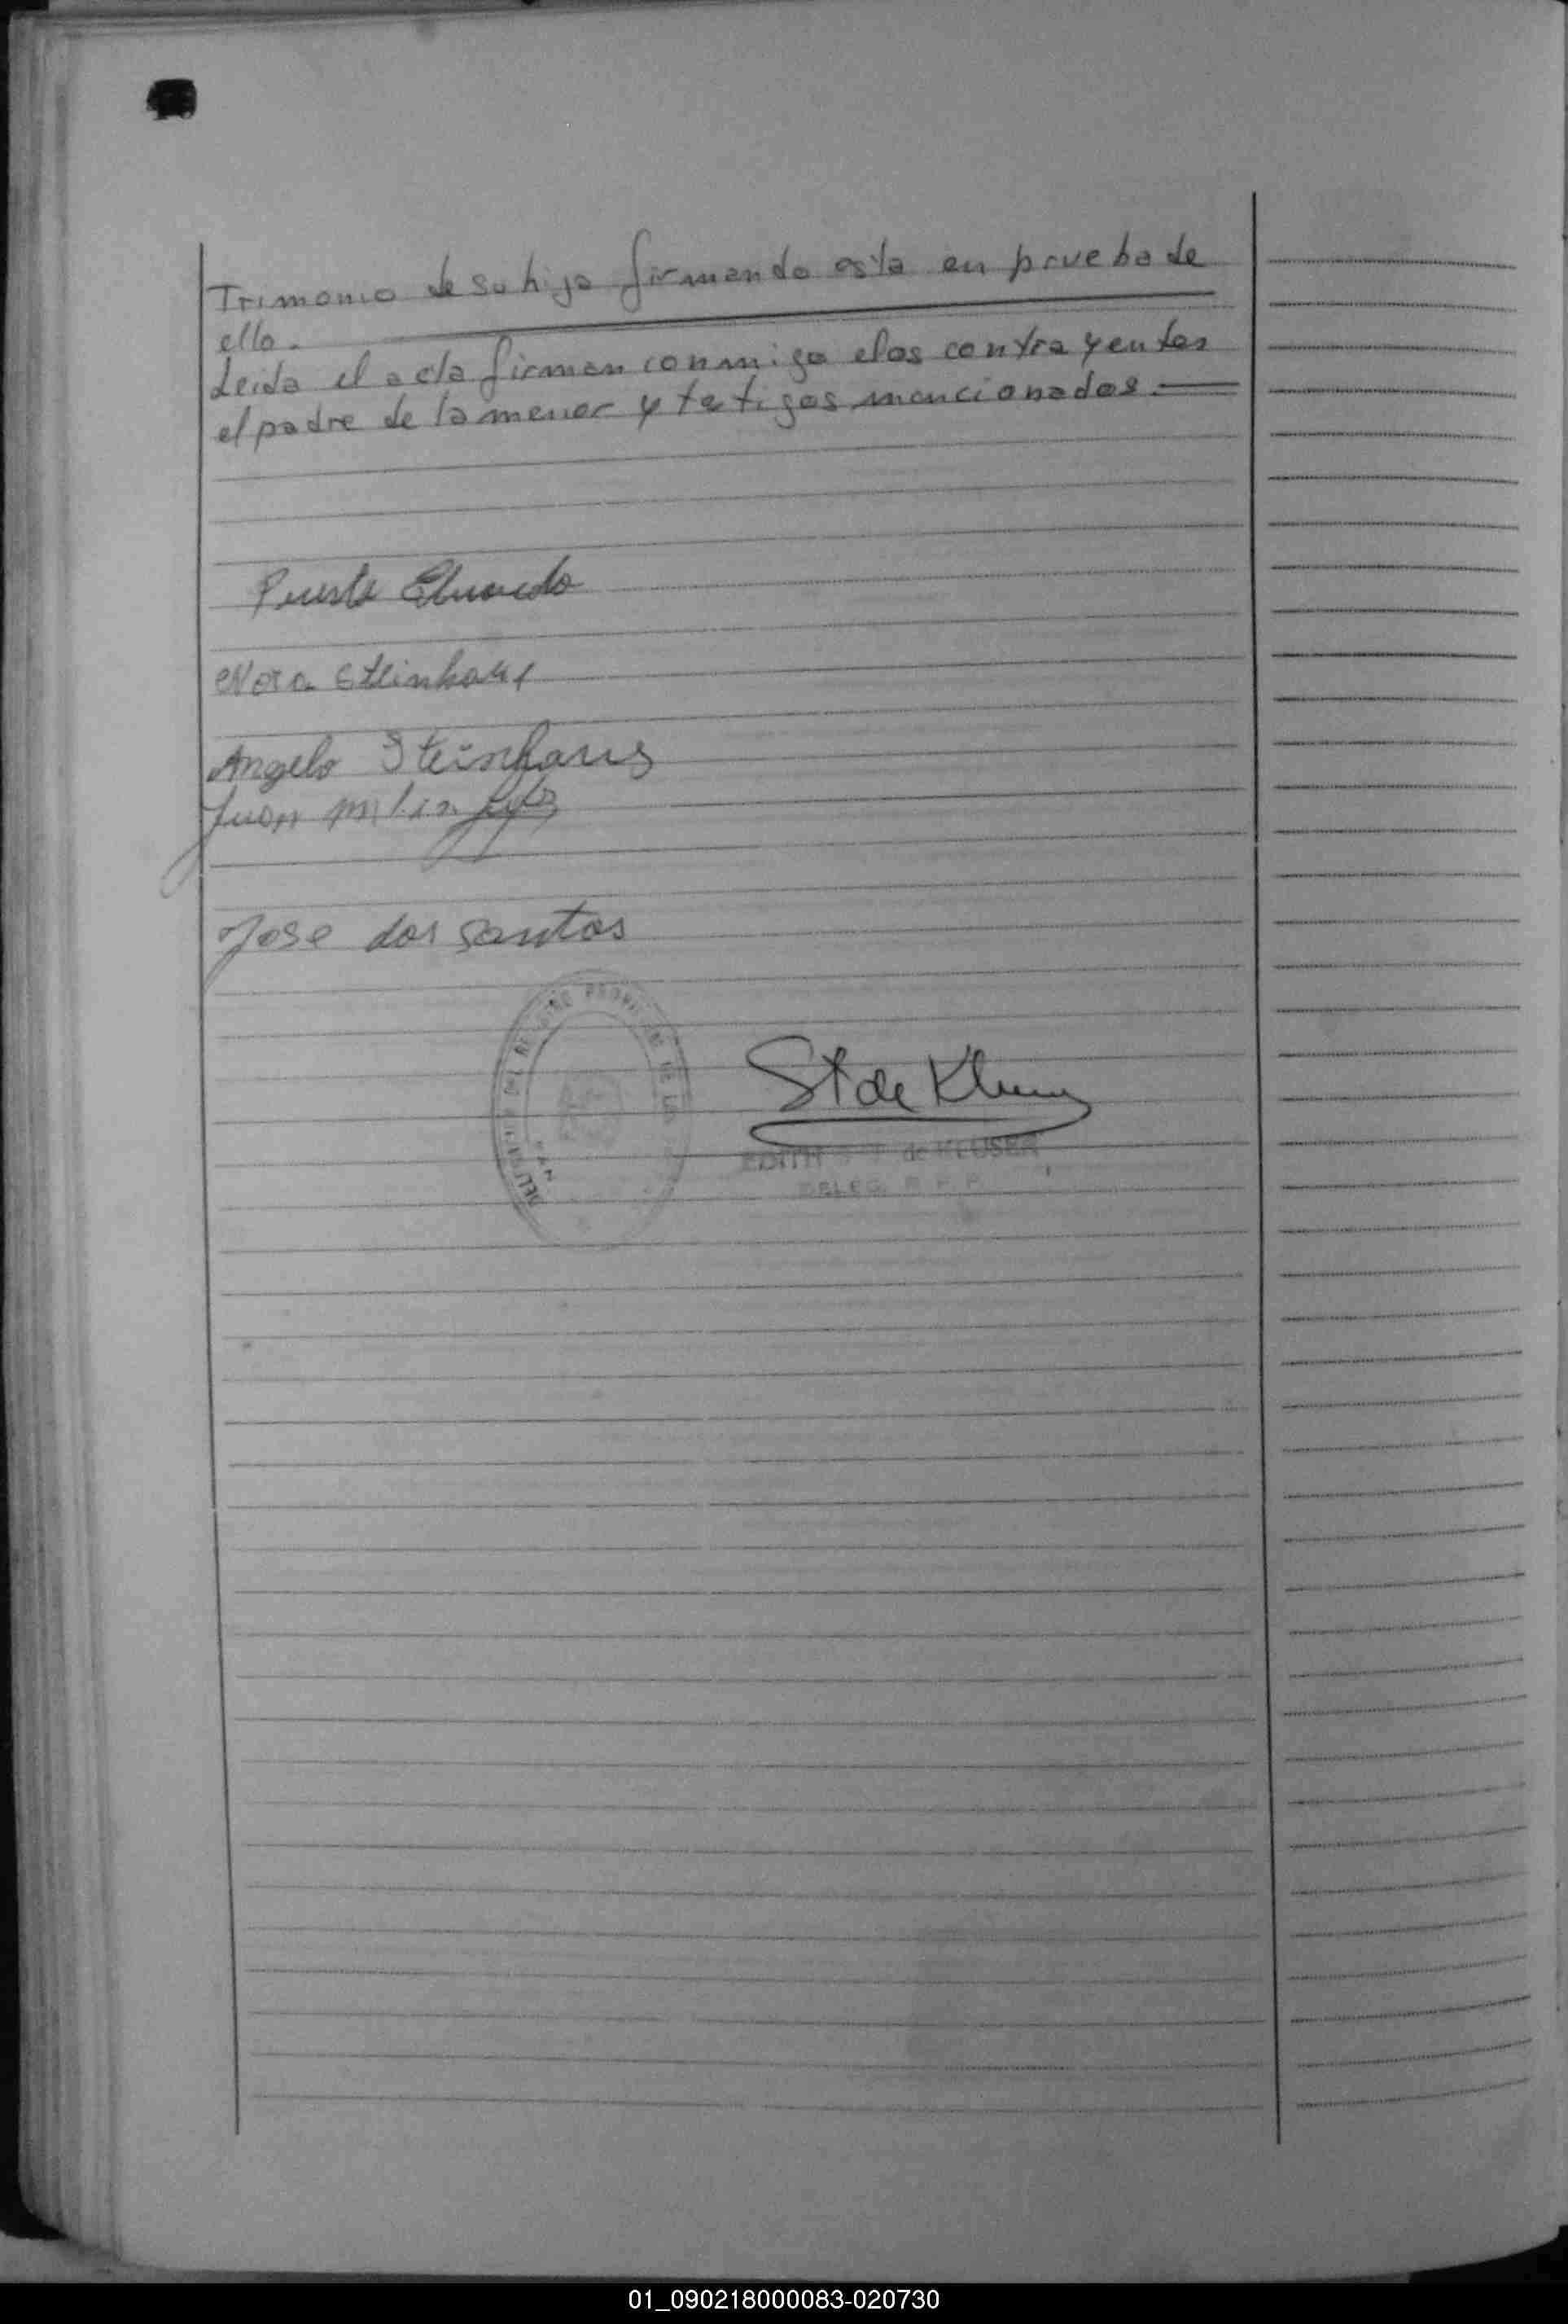 Trimonio de su hija firmando esta en prueba de
ello.
Leida el acta firman conmigo elos contrayentes
el padre de la menor y testigos mencionados.
Eduardo
Nora Steinhaus
Angelo Steinhaus
Juan
Jose dos santos
DEL REGISTRO PROVINCIAL DE LAS
St de Klu
EDITH de KLUSER
DELEG. R. P. P.
01_090218000083-020730